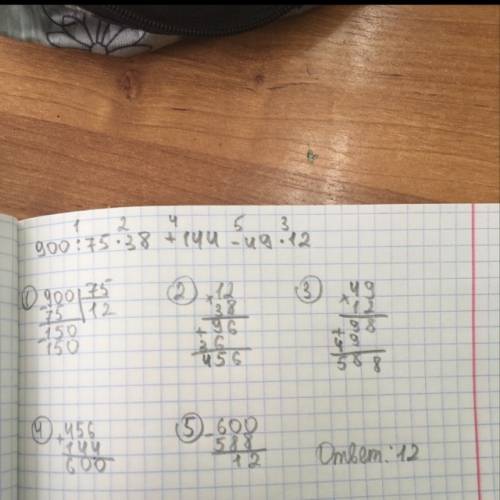 1 2 4 5 3
900:75·38+144-49·12
① 900 75
- 75 12
- 150
150
② × 12
38
+ 96
36
456
③ × 49
12
+ 98
49
588
④ + 456
144
600
⑤ - 600
588
12
Ответ: 12